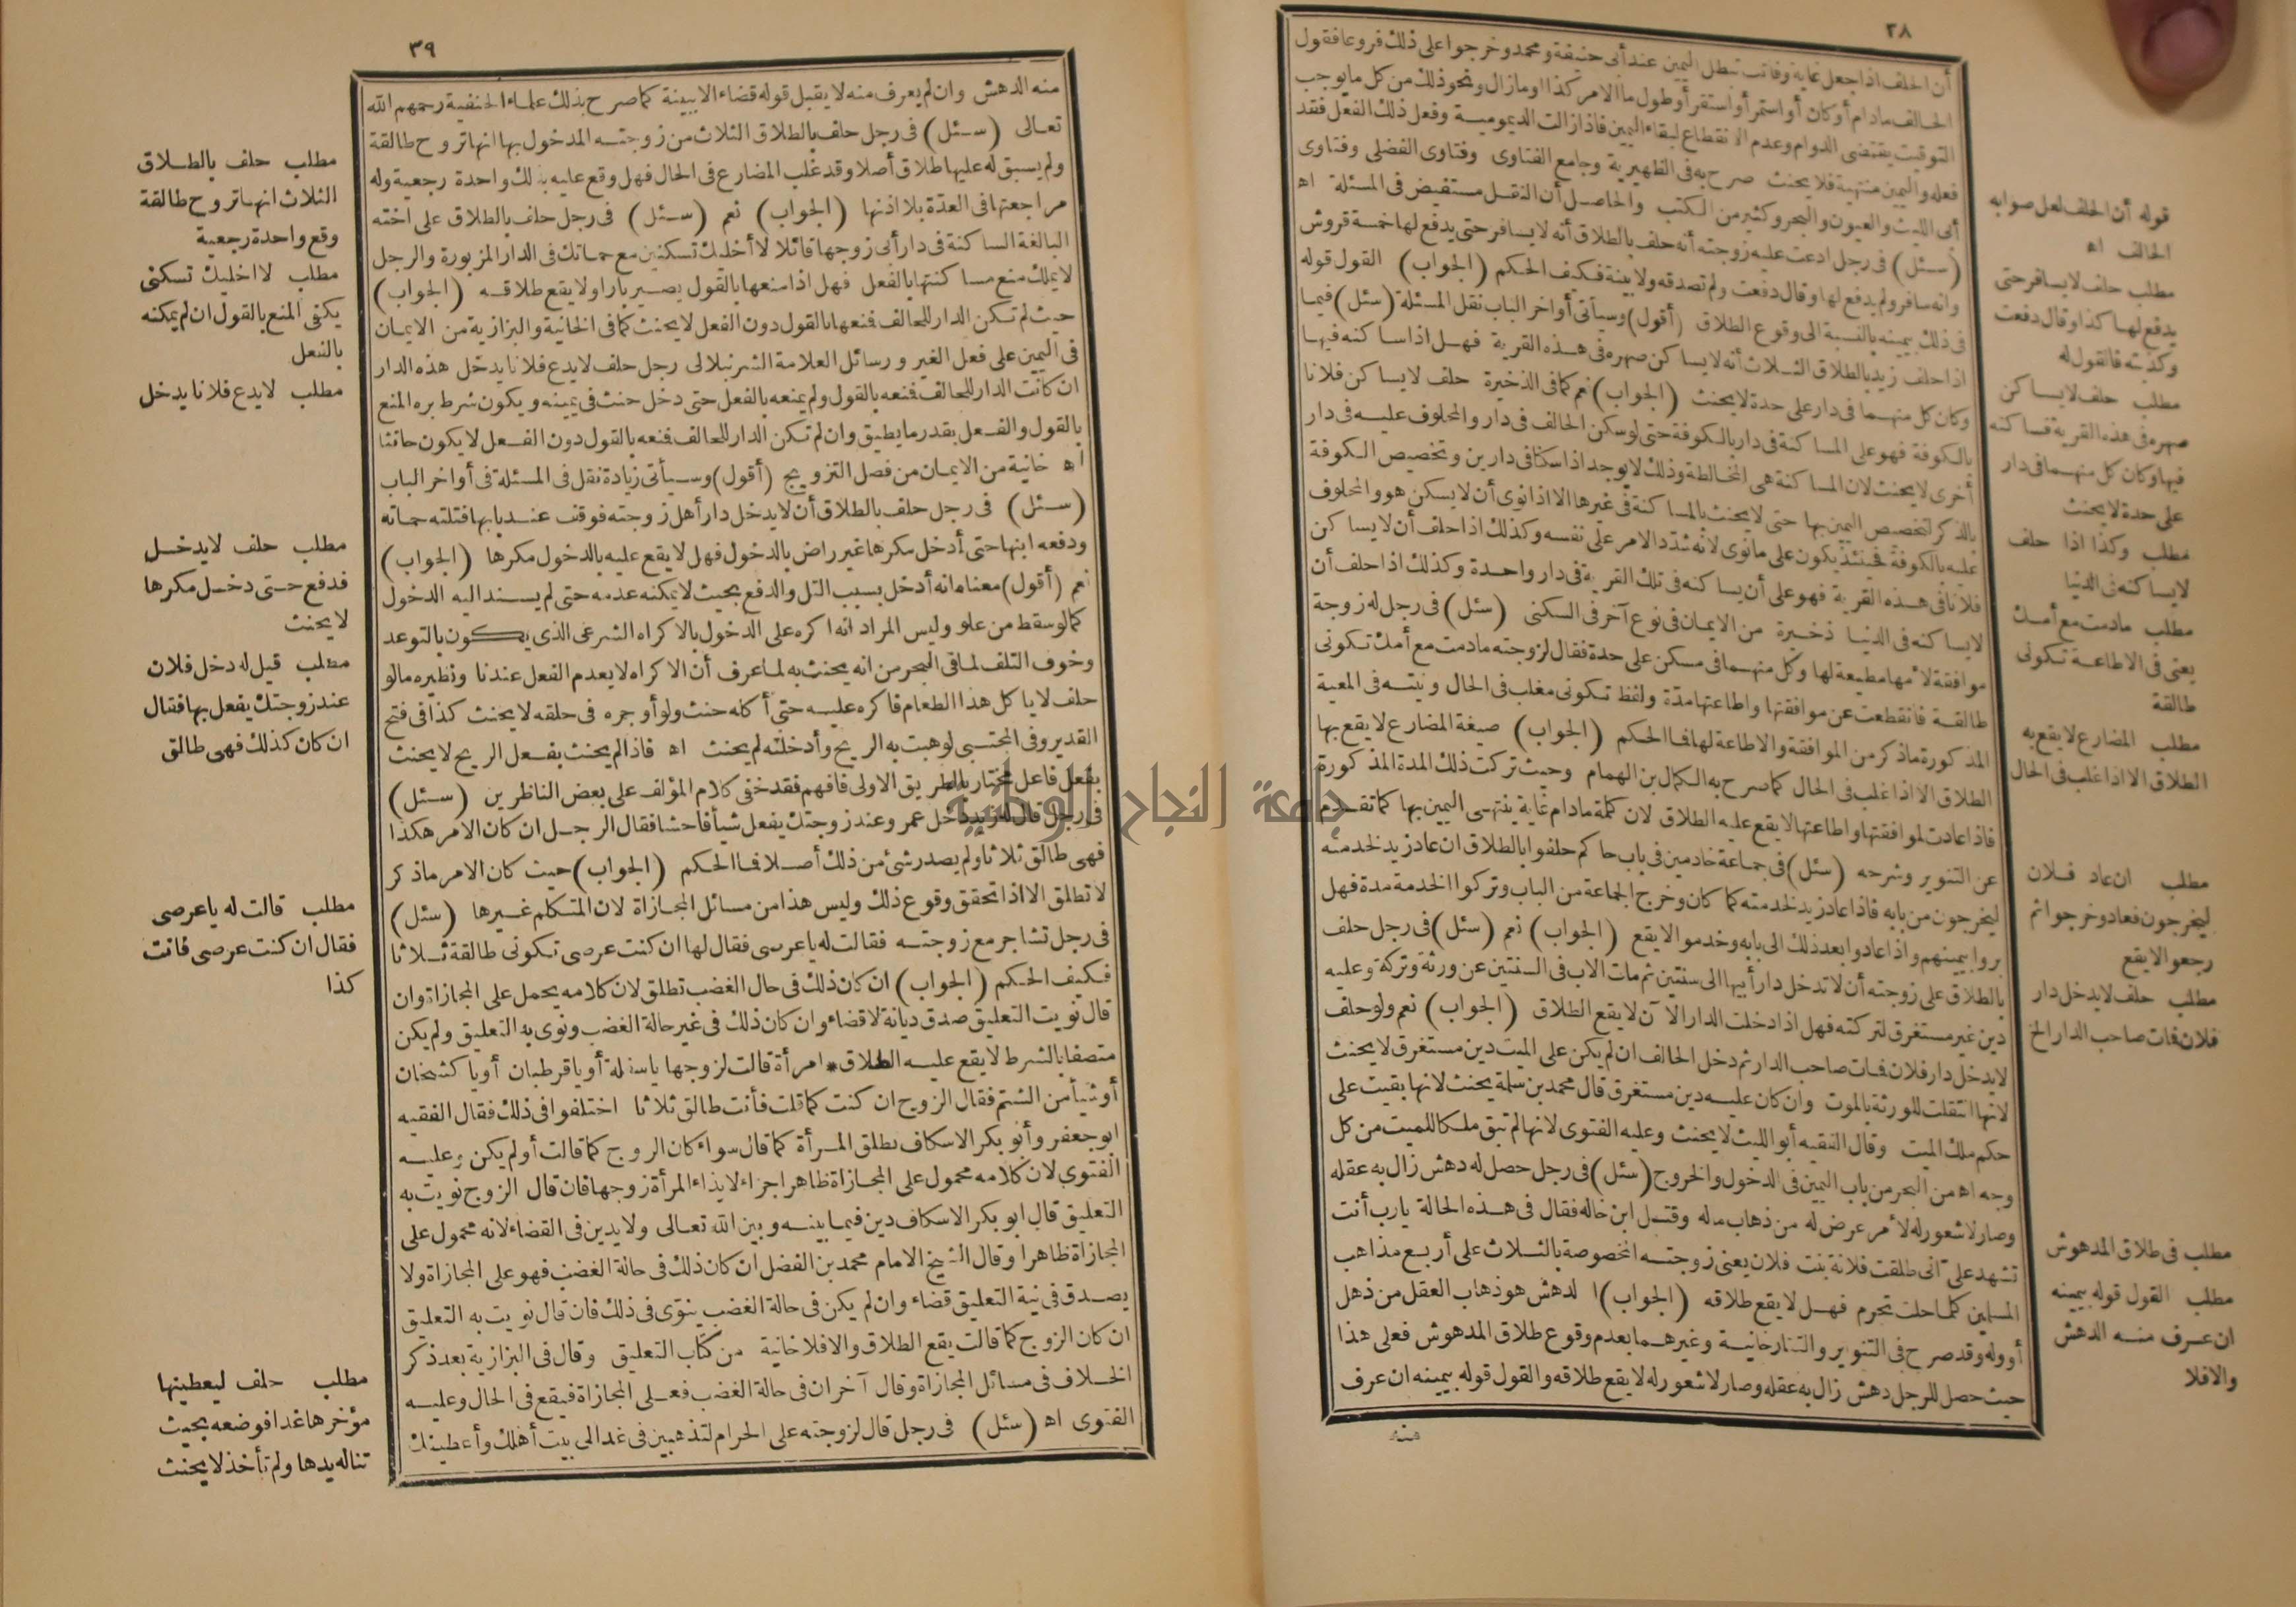 ٣٨
أن الحلف اذا جعل غاية وفاتت تبطل اليمين عند أبى حنيفة ومحمد وخرجوا على ذلك فروعا فقول
الحالف مادام أو كان أو استمر أو استقر أو طول ما الامر كذا او مازال ونحو ذلك من كل ما يوجب
التوقيت يقتضى الدوام وعدم الانقطاع لبقاء اليمين فاذا زالت الديمومية وفعل ذلك الفعل فقد
فعله واليمين منتهية فلا يحنث صرح به فى الظهيرية وجامع الفتاوى وفتاوى الفضلى وفتاوى
أبى الليث والعيون والبحر وكثير من الكتب والحاصل أن النقل مستفيض فى المسئلة اه
(سئل) فى رجل ادعت عليه زوجته أنه حلف بالطلاق أنه لا يسافر حتى يدفع لها خمسة قروش
وانه سافر ولم يدفع لها وقال دفعت ولم تصدقه ولا بينة فكيف الحكم (الجواب) القول قوله
فى ذلك بيمينه بالنسبة الى وقوع الطلاق (أقول) وسيأتى أواخر الباب نقل المسئلة (سئل) فيما
اذا حلف زيد بالطلاق الثلاث أنه لا يساكن صهره فى هذه القرية فهل اذا ساكنه فيها
وكان كل منهما فى دار على حدة لا يحنث (الجواب) نعم كما فى الذخيرة حلف لا يساكن فلانا
بالكوفة فهو على المساكنة فى دار بالكوفة حتى لو سكن الحالف فى دار والمحلوف عليه فى دار
أخرى لا يحنث لان المساكنة هى المخالطة وذلك لا يوجد اذا سكنا فى دارين وتخصيص الكوفة
بالذكر لتخصيص اليمين بها حتى لا يحنث بالمساكنة فى غيرها الا اذا نوى أن لا يسكن هو والمحلوف
عليه بالكوفة فحينئذ يكون على ما نوى لانه شدد الامر على نفسه وكذلك اذا حلف أن لا يساكن
فلانا فى هذه القرية فهو على أن يساكنه فى تلك القرية فى دار واحدة وكذلك اذا حلف أن
لا يساكنه فى الدنيا ذخيرة من الايمان فى نوع آخر فى السكنى (سئل) فى رجل له زوجة
موافقة لأمها مطيعة لها وكل منهما فى مسكن على حدة فقال لزوجته مادمت مع أمك تكونى
طالقة فانقطعت عن موافقتها واطاعتها مدة ولفظ تكونى مغلب فى الحال ونيته فى المعية
المذكورة ماذكر من الموافقة والاطاعة لها فما الحكم (الجواب) صيغة المضارع لا يقع بها
الطلاق الا اذا غلب فى الحال كما صرح به الكمال بن الهمام وحيث تركت ذلك المدة المذكورة
فاذا عادت لموافقتها واطاعتها لا يقع عليه الطلاق لان كلمة مادام غاية ينتهى اليمين بها كما تقدم
عن التنوير وشرحه (سئل) فى جماعة خادمين فى باب حاكم حلفوا بالطلاق ان عاد زيد لخدمته
ليخرجون من بابه فاذا عاد زيد لخدمته كما كان وخرج الجماعة من الباب وتركوا الخدمة مدة فهل
بروا بيمينهم واذا عادوا بعد ذلك الى بابه وخدموا لا يقع (الجواب) نعم (سئل) فى رجل حلف
بالطلاق على زوجته أن لا تدخل دار أبيها الى سنتين ثم مات الاب فى السنتين عن ورثة وتركة وعليه
دين غير مستغرق لتركته فهل اذا دخلت الدار الآن لا يقع الطلاق (الجواب) نعم ولو حلف
لا يدخل دار فلان فمات صاحب الدار ثم دخل الحالف ان لم يكن على الميت دين مستغرق لا يحنث
لانها انتقلت للورثة بالموت وان كان عليه دين مستغرق قال محمد بن سلمة يحنث لانها بقيت على
حكم ملك الميت وقال الفقيه أبو الليث لا يحنث وعليه الفتوى لانها لم تبق ملكا للميت من كل
وجه اه من البحر من باب اليمين فى الدخول والخروج (سئل) فى رجل حصل له دهش زال به عقله
وصار لا شعور له لأمر عرض له من ذهاب ماله وقتل ابن خاله فقال فى هذه الحالة يارب أنت
تشهد على انى طلقت فلانة بنت فلان يعنى زوجته المخصوصة بالثلاث على أربع مذاهب
المسلمين كلما حلت تحرم فهل لا يقع طلاقه (الجواب) الدهش هو ذهاب العقل من ذهل
أو وله وقد صرح فى التنوير والتتارخانية وغيرهما بعدم وقوع طلاق المدهوش فعلى هذا
حيث حصل للرجل دهش زال به عقله وصار لا شعور له لا يقع طلاقه والقول قوله بيمينه ان عرف
منه
قوله أن الحلف لعل صوابه
الحالف اه
مطلب حلف لا يسافر حتى
يدفع لها كذا وقال دفعت
وكذبته فالقول له
مطلب حلف لا يساكن
صهره فى هذه القرية فساكنه
فيها وكان كل منهما فى دار
على حدة لا يحنث
مطلب وكذا اذا حلف
لا يساكنه فى الدنيا
مطلب مادمت مع أمك
يعنى فى الاطاعة تكونى
طالقة
مطلب المضارع لا يقع به
الطلاق الا اذا غلب فى الحال
مطلب ان عاد فلان
ليخرجون فعاد وخرجوا ثم
رجعوا لا يقع
مطلب حلف لا يدخل دار
فلان فمات صاحب الدار الخ
مطلب فى طلاق المدهوش
مطلب القول قوله بيمينه
ان عرف منه الدهش
والافلا
٣٩
منه الدهش وان لم يعرف منه لا يقبل قوله قضاء الا ببينة كما صرح بذلك علماء الحنفية رحمهم الله
تعالى (سئل) فى رجل حلف بالطلاق الثلاث من زوجته المدخول بها انها تروح طالقة
ولم يسبق له عليها طلاق أصلا وقد غلب المضارع فى الحال فهل وقع عليه بذلك واحدة رجعية وله
مراجعتها فى العدة بلا اذنها (الجواب) نعم (سئل) فى رجل حلف بالطلاق على اخته
البالغة الساكنة فى دار أبى زوجها قائلا لا أخليك تسكنين مع حماتك فى الدار المزبورة والرجل
لا يملك منع مساكنتها بالفعل فهل اذا منعها بالقول يصير بارا ولا يقع طلاقه (الجواب)
حيث لم تكن الدار للحالف فمنعها بالقول دون الفعل لا يحنث كما فى الخانية والبزازية من الايمان
فى اليمين على فعل الغير ورسائل العلامة الشرنبلالى رجل حلف لا يدع فلانا يدخل هذه الدار
ان كانت الدار للحالف فمنعه بالقول ولم يمنعه بالفعل حتى دخل حنث فى يمينه ويكون شرط بره المنع
بالقول والفعل بقدر ما يطيق وان لم تكن الدار للحالف فمنعه بالقول دون الفعل لا يكون حانثا
اه خانية من الايمان من فصل التزويج (أقول) وسيأتى زيادة نقل فى المسئلة فى أواخر الباب
(سئل) فى رجل حلف بالطلاق أن لا يدخل دار أهل زوجته فوقف عند بابها فتلته حماته
ودفعه ابنها حتى أدخل مكرها غير راض بالدخول فهل لا يقع عليه بالدخول مكرها (الجواب)
نعم (أقول) معناه انه أدخل بسبب التل والدفع بحيث لا يمكنه عدمه حتى لم يسند اليه الدخول
كما لو سقط من علو وليس المراد انه اكره على الدخول بالاكراه الشرعى الذى يكون بالتوعد
وخوف التلف لما فى البحر من انه يحنث به لما عرف أن الاكراه لا يعدم الفعل عندنا ونظيره مالو
حلف لا يأكل هذا الطعام فاكره عليه حتى أكله حنث ولو أوجره فى حلقه لا يحنث كذا فى فتح
القدير وفى المجتبى لو هبت به الريح وأدخلته لم يحنث اه فاذا لم يحنث بفعل الريح لا يحنث
بفعل فاعل مختار بالطريق الاولى فافهم فقد خفى كلام المؤلف على بعض الناظرين (سئل)
فى رجل قال له زيد دخل عمرو عند زوجتك يفعل شيأ فاحشا فقال الرجل ان كان الامر هكذا
فهى طالق ثلاثا ولم يصدر شئ من ذلك أصلا فما الحكم (الجواب) حيث كان الامر ماذكر
لا تطلق الا اذا تحقق وقوع ذلك وليس هذا من مسائل المجازاة لان المتكلم غيرها (سئل)
فى رجل تشاجر مع زوجته فقالت له يا عرصى فقال لها ان كنت عرصى تكونى طالقة ثلاثا
فكيف الحكم (الجواب) ان كان ذلك فى حال الغضب تطلق لان كلامه يحمل على المجازاة وان
قال نويت التعليق صدق ديانة لا قضاء وان كان ذلك فى غير حالة الغضب ونوى به التعليق ولم يكن
متصفا بالشرط لا يقع عليه الطلاق * امرأة قالت لزوجها يا سفلة أو يا قرطبان أو يا كشخان
أو شيأ من الشتم فقال الزوج ان كنت كما قلت فأنت طالق ثلاثا اختلفوا فى ذلك فقال الفقيه
ابو جعفر وأبو بكر الاسكاف تطلق المرأة كما قال سواء كان الزوج كما قالت أو لم يكن وعليه
الفتوى لان كلامه محمول على المجازاة ظاهرا جزاء لايذاء المرأة زوجها فان قال الزوج نويت به
التعليق قال ابو بكر الاسكاف دين فيما بينه وبين الله تعالى ولا يدين فى القضاء لانه محمول على
المجازاة ظاهرا وقال الشيخ الامام محمد بن الفضل ان كان ذلك فى حالة الغضب فهو على المجازاة ولا
يصدق فى نية التعليق قضاء وان لم يكن فى حالة الغضب ينوى فى ذلك فان قال نويت به التعليق
ان كان الزوج كما قالت يقع الطلاق والافلا خانية من كتاب التعليق وقال فى البزازية بعد ذكر
الخلاف فى مسائل المجازاة وقال آخر ان فى حالة الغضب فعلى المجازاة فيقع فى الحال وعليه
الفتوى اه (سئل) فى رجل قال لزوجته على الحرام لتذهبين فى غد الى بيت أهلك وأعطينك
مطلب حلف بالطلاق
الثلاث انها تروح طالقة
وقع واحدة رجعية
مطلب لا اخليك تسكنى
يكفى المنع بالقول ان لم يمكنه
بالفعل
مطلب لا يدع فلانا يدخل
مطلب حلف لا يدخل
فدفع حتى دخل مكرها
لا يحنث
مطلب قيل له دخل فلان
عند زوجتك يفعل بها فقال
ان كان كذلك فهى طالق
مطلب قالت له يا عرصى
فقال ان كنت عرصى فانت
كذا
مطلب حلف ليعطينها
مؤخرها غدا فوضعه بحيث
تناله يدها ولم تأخذ لا يحنث
جامعة النجاح الوطنية